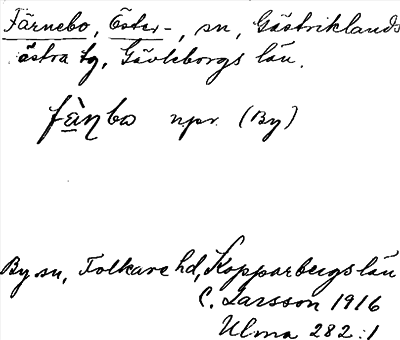 Färnebo, Öster-, sn, Gästriklands
östra tg, Gävleborgs län.
fàṇbo npr. (By)
By sn, Folkare hd, Kopparbergs län
C. Larsson 1916
Ulma 282:1